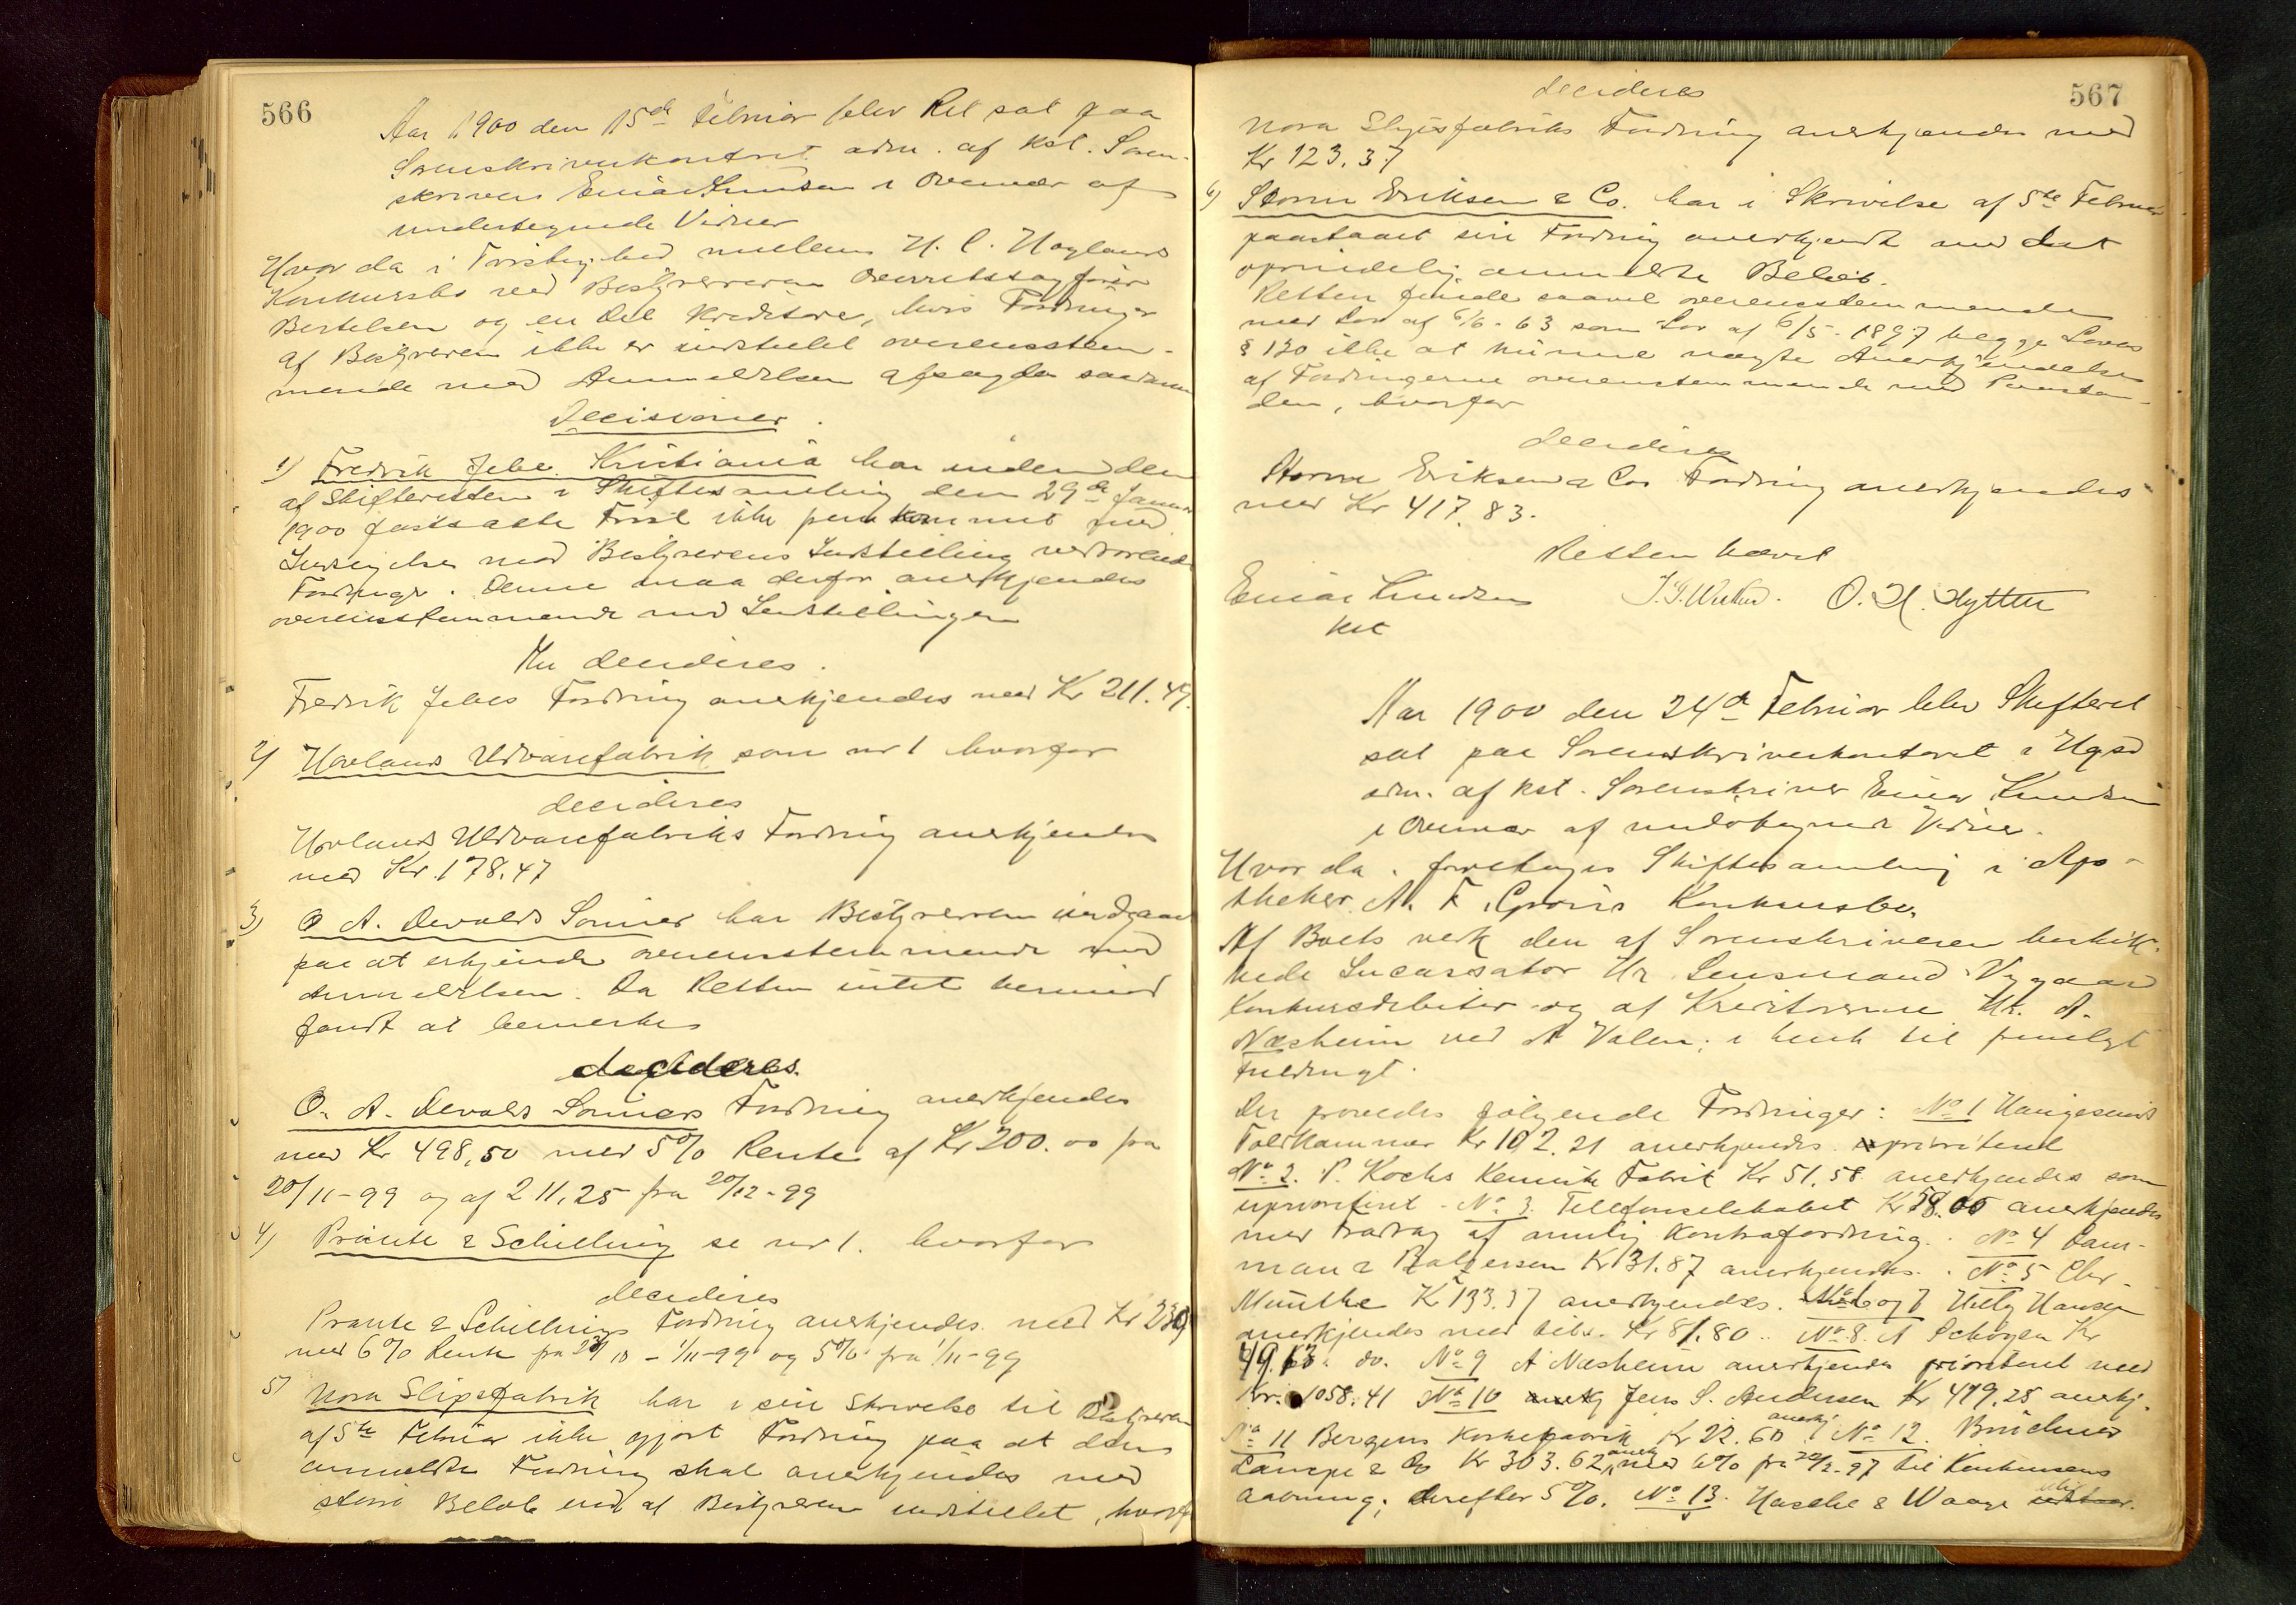 566
Aar 1900 den 15de Februar blev Ret sat paa
Sorenskriverkontoret adm. af kst. Soren-
skriver Einar Knudsen i Overvær af
undertegnede Vidner
Hvor da i Forbindelse mellem H. C. Hoglands
Konkursbo ved Bestyreren Overretssagfører
Bertelsen og en Del Kreditore, hvis Fordringer
af Bestyreren ikke er indstillet overensstem-
mende med Anmeldelsen afsagdes saadanne
Decisioner.
1) Fredrik Jebe Kristiania har inden den
af Skifteretten i Skiftesamling den 29de Januar
1900 fastsatte Frist ikke fremkommet med
Indsigelser mod Bestyrerens Indstilling vedrørende
Fordringen. Denne maa derfor anerkjendes
overensstemmende med Indstillingen
Thi decideres.
Fredrik Jebes Fordring anerkjendes med Kr 211.49.
2) Hovlands Uldvarefabrik som nr 1 hvorfor
decideres
Hovlands Uldvarefabriks Fordring anerkjendes
med Kr. 178.47
3) O. A. Devolds Sønner har Bestyreren indgaaet
paa at erkjende overensstemmende med
Anmeldelsen. Da Retten intet hermod
fandt at bemerke
decideres.
O. A. Devolds Sønners Fordring anerkjendes
med Kr 498,50 med 5% Rente af Kr 200.00 fra
20/11-99 og af 211,25 fra 20/12-99
4) Prante & Schilling se nr 1. hvorfor
decideres
Prante & Schillings Fordring anerkjendes med Kr 230
med 6% Rente fra 23/10 - 1/11-99 og 5% fra 1/11-99
5) Nora Slipsfabrik har i sin Skrivelse til Bestyreren
af 5te Februar ikke gjort Fordring paa at dens
anmeldte Fordring skal anerkjendes med
større Beløb end af Bestyreren indstillet, hvorfor
567
decideres
Nora Slipsfabriks Fordring anerkjendes med
Kr 123.37
6) Storm Eriksen & Co. har i Skrivelse af 5te Februar
paastaaet sin Fordring anerkjendt med det
oprindelig anmeldte Beløb.
Retten finder saavel overensstemmende
med Lov af 6/6-63 som Lov af 6/5-1897 begge Loves
§ 130 ikke at kunne nægte Anerkjendelse
af Fordringerne overensstemmende med Paastan-
den, hvorfor
decideres
Storm Eriksen & Cos Fordring anerkjendes
med Kr 417.83.
Retten hævet
Einar Knudsen O. H. Hytten
kst
Aar 1900 den 24de Februar blev Skifteret
sat paa Sorenskriverkontoret i Hgsd
adm. af kst. Sorenskriver Einar Knudsen
i Overvær af undertegnede Vidner.
Hvor da foretoges Skiftesamling i Apo-
theker A. F. Konkursbo.
Af Boets verk den af Sorenskriveren beskik-
kede Incassator Hr. Lensmand Vygaard
Konkursdebitor og af Kreditorerne Hr. A.
Næsheim ved A Valen; i henh til fremlagt
Fuldmagt.
Der prøvedes følgende Fordringer: No 1 Haugesunds
Toldkammer Kr 102.21 anerkjendes uprioritert
No 2. P. Kochs Kemiske Fabrik Kr 51.58 anerkjendes som
uprioritert - No 3. Telefonselskabet Kr 58.00 anerkjendes
med Fradrag af mulig Kontrafordring. No 4 Dam-
man & Kr 131.87 anerkjendes. No 5 Chr.
Munthe Kr 133.37 anerkjendes. No 6 og 7 Hansen
anerkjendes med tils. Kr 81.80. No 8. A Schøyen Kr
49.63. do. No 9 A Næsheim anerkjendes prioritert med
Kr. 1058.41 No 10 Jens S. Andersen Kr 419.25 anerkj.
No 11 Bergens Korkefabrik Kr 22.60 anerkj No 12. Brückner
Lampe & Co Kr 303.62 anerk med 6% fra 20/2-97 til Konkursens
Aabning; derefter 5%. No 13. Hasche & Waage